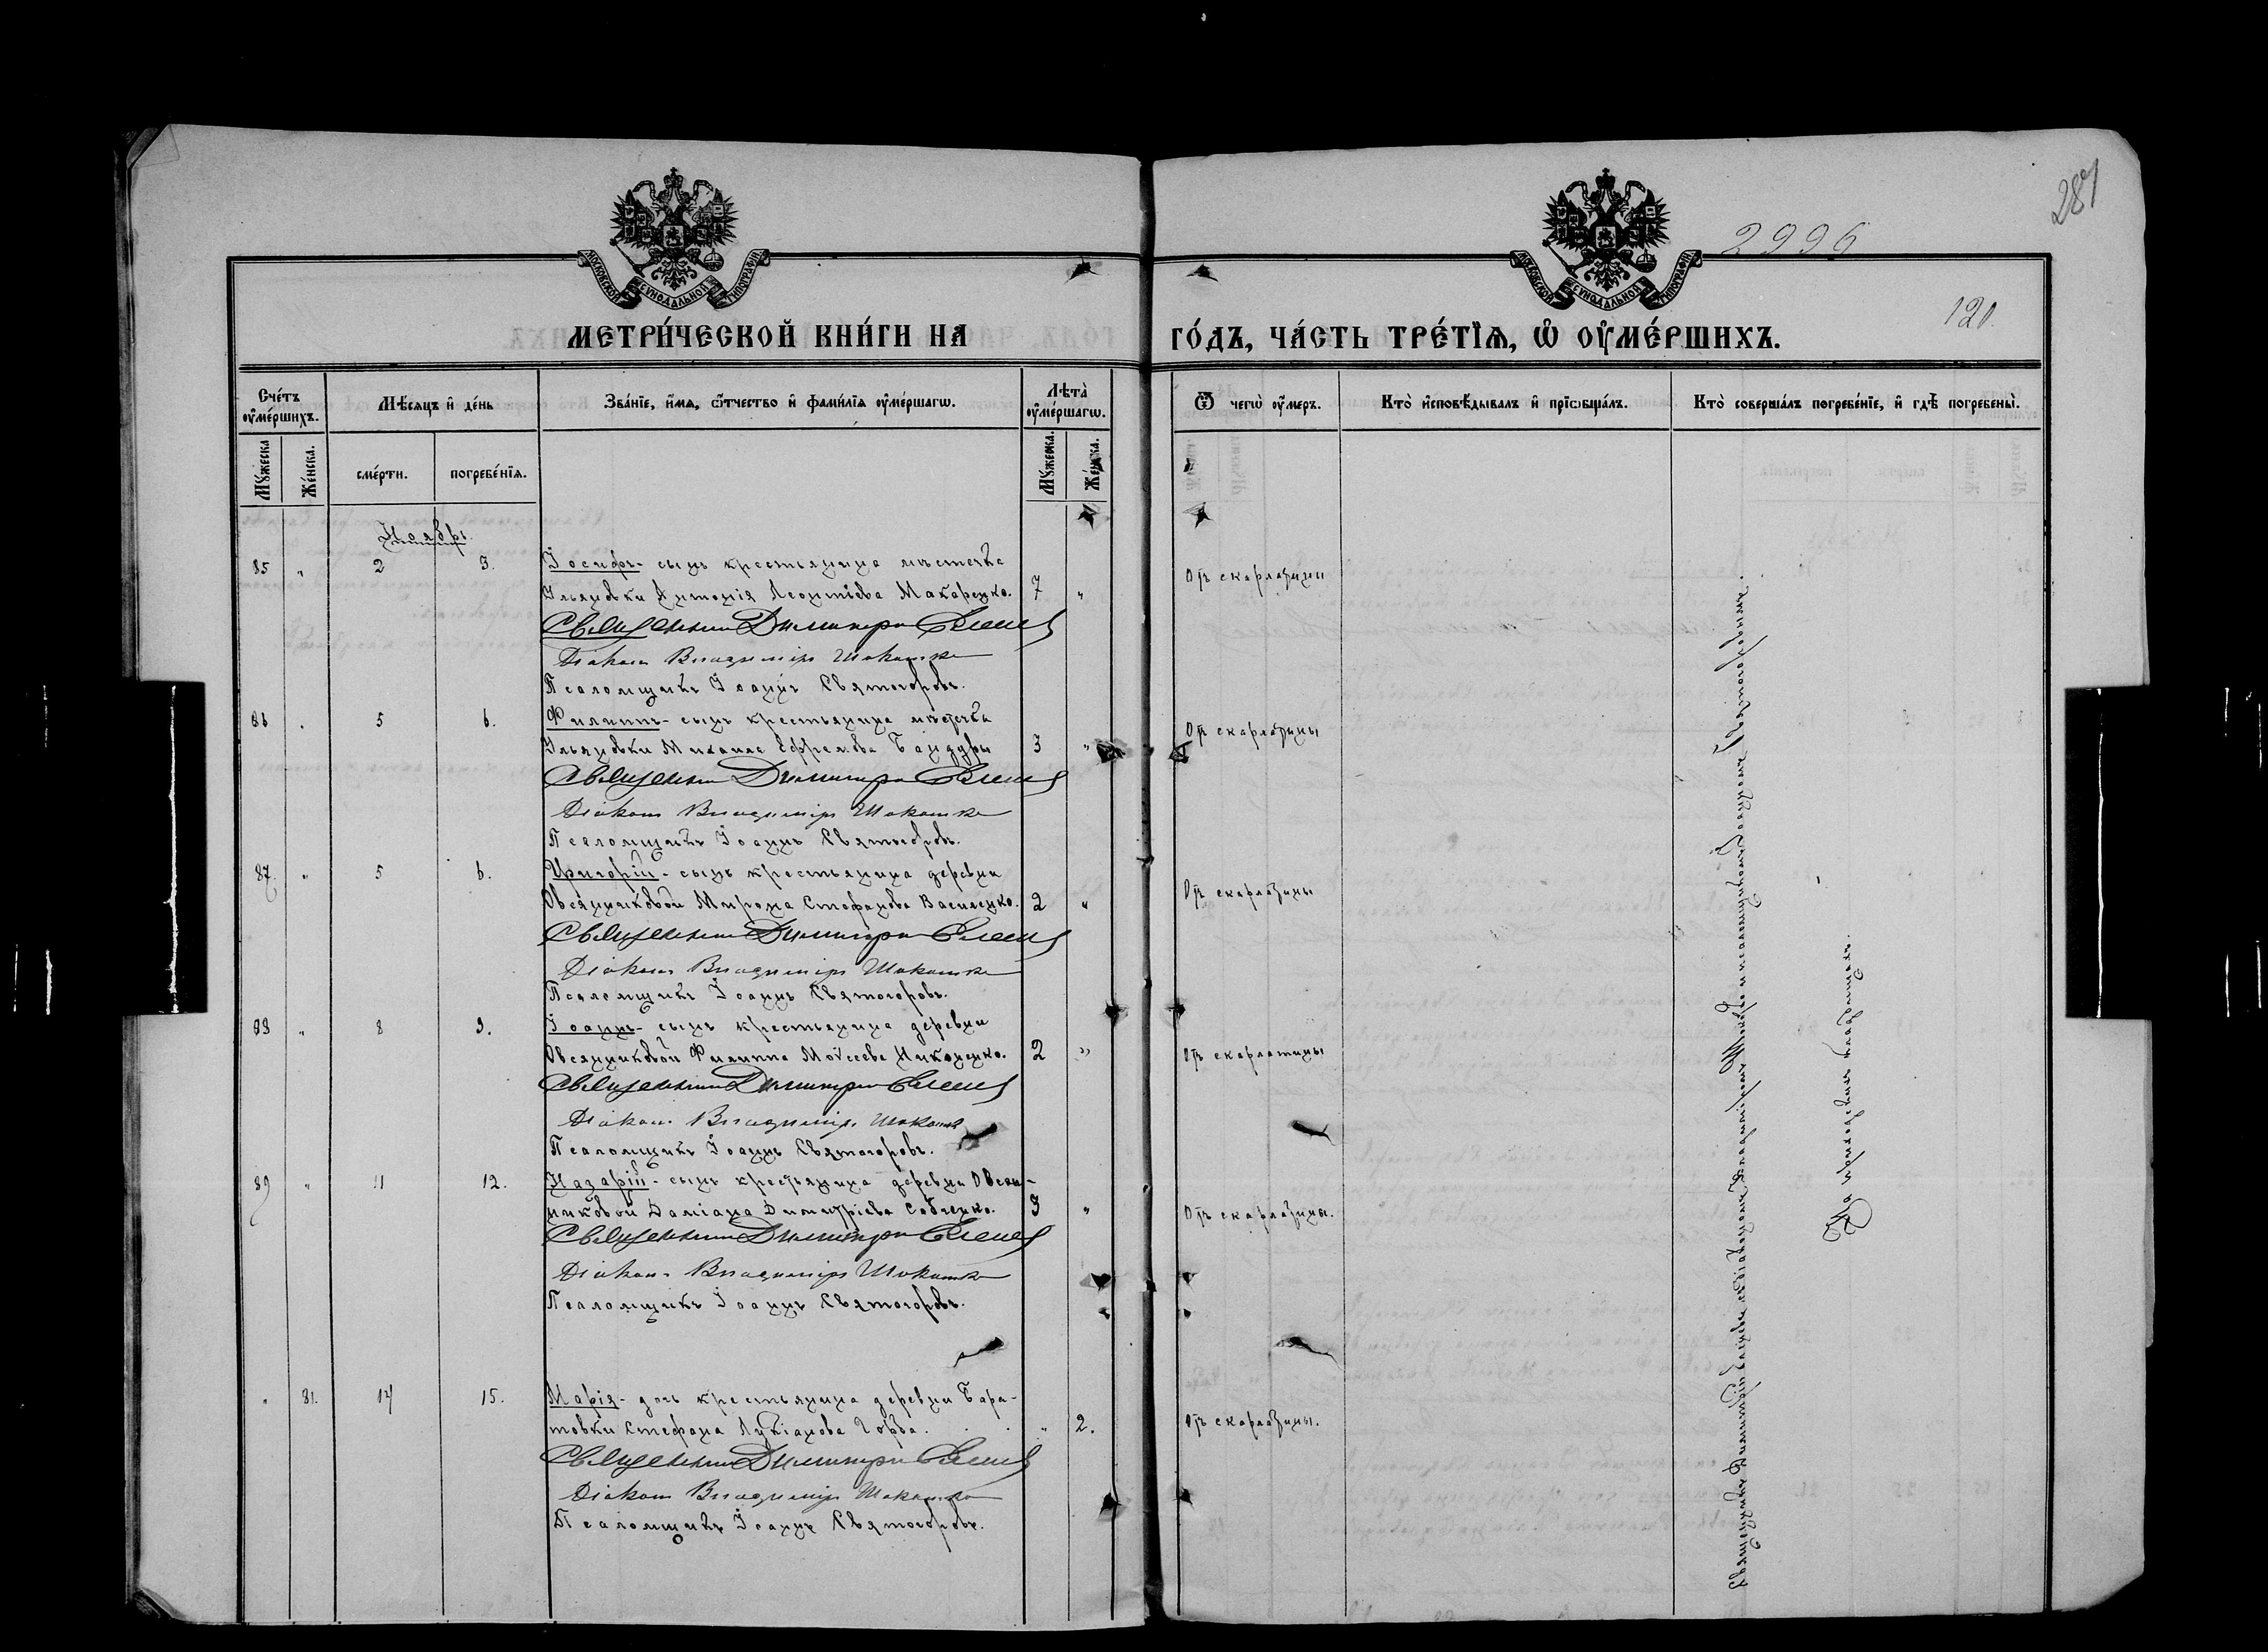 287
2996
120.
МОСКОВСКОЙ СУНОДАЛЬНОЙ ТИПОГРАФІИ
МОСКОВСКОЙ СУНОДАЛЬНОЙ ТИПОГРАФІИ
МЕТРИ́ЧЕСКОЙ КНИ́ГИ НА ГО́ДЪ, ЧА́СТЬ ТРЕ́ТЇѦ, Ѡ҆ ОУ҆МЕ́РШИХЪ.
Сче́тъ оу҆ме́ршихъ.
Мѣ́сяцъ и҆ де́нь
Зва́нїе, и҆́мѧ, ѻ҆́тчество и҆ фами́лїѧ оу҆ме́ршагѡ.
Лѣта̀ оу҆ме́ршагѡ.
Ѿ чегѡ̀ оу҆́меръ.
Кто̀ и҆сповѣ́дывалъ и҆ прїѡбща́лъ.
Кто̀ соверша́лъ погребе́нїе, и҆ гдѣ̀ погребены̀.
Мꙋ́жеска
Же́нска.
сме́рти.
погребе́нїѧ.
Мꙋ́жеска.
Же́нска.
Ноябрь.
85 " 2 3. Іосифъ - сынъ крестьянина мѣстечка
Ульяновки Антонія Леонтіева Макаренко. 7 " Отъ скарлатины
Священникъ Димитрій
Діаконъ Владиміръ
Псаломщикъ Іоаннъ Святогоровъ.
86 " 5 6. Филиппъ - сынъ крестьянина мѣстечка
Ульяновки Михаила Ефремова Бандуры 3 " Отъ скарлатины
Священникъ Димитрій
Діаконъ Владиміръ
Псаломщикъ Іоаннъ Святогоровъ.
87. " 5 6. Григорій - сынъ крестьянина деревни
Овсянниковой Мирона Стефанова Василенко. 2 " Отъ скарлатины
Священникъ Димитрій
Діаконъ Владиміръ
Псаломщикъ Іоаннъ Святогоровъ.
88 " 8 9. Іоаннъ - сынъ крестьянина деревни
Овсянниковой Филиппа Моѵсеева Никоненко. 2 " Отъ скарлатины
Священникъ Димитрій
Діаконъ Владиміръ
Псаломщикъ Іоаннъ Святогоровъ.
89 " 11 12. Назарій - сынъ крестьянина деревни Овсян-
никовой Даміана Димитріева Собченко. 3 " Отъ скарлатины.
Священникъ Димитрій
Діаконъ Владиміръ
Псаломщикъ Іоаннъ Святогоровъ.
" 81. 14 15. Марія - дочь крестьянина деревни Бара-
товки Стефана Лукіанова Горба. " 2. Отъ скарлатины.
Священникъ Димитрій
Діаконъ Владиміръ
Псаломщикъ Іоаннъ Святогоровъ.
Священникъ Димитрій съ діакономъ Владиміромъ и псаломщикомъ Іоанномъ Святогоровымъ.
На приходскомъ кладбищѣ.